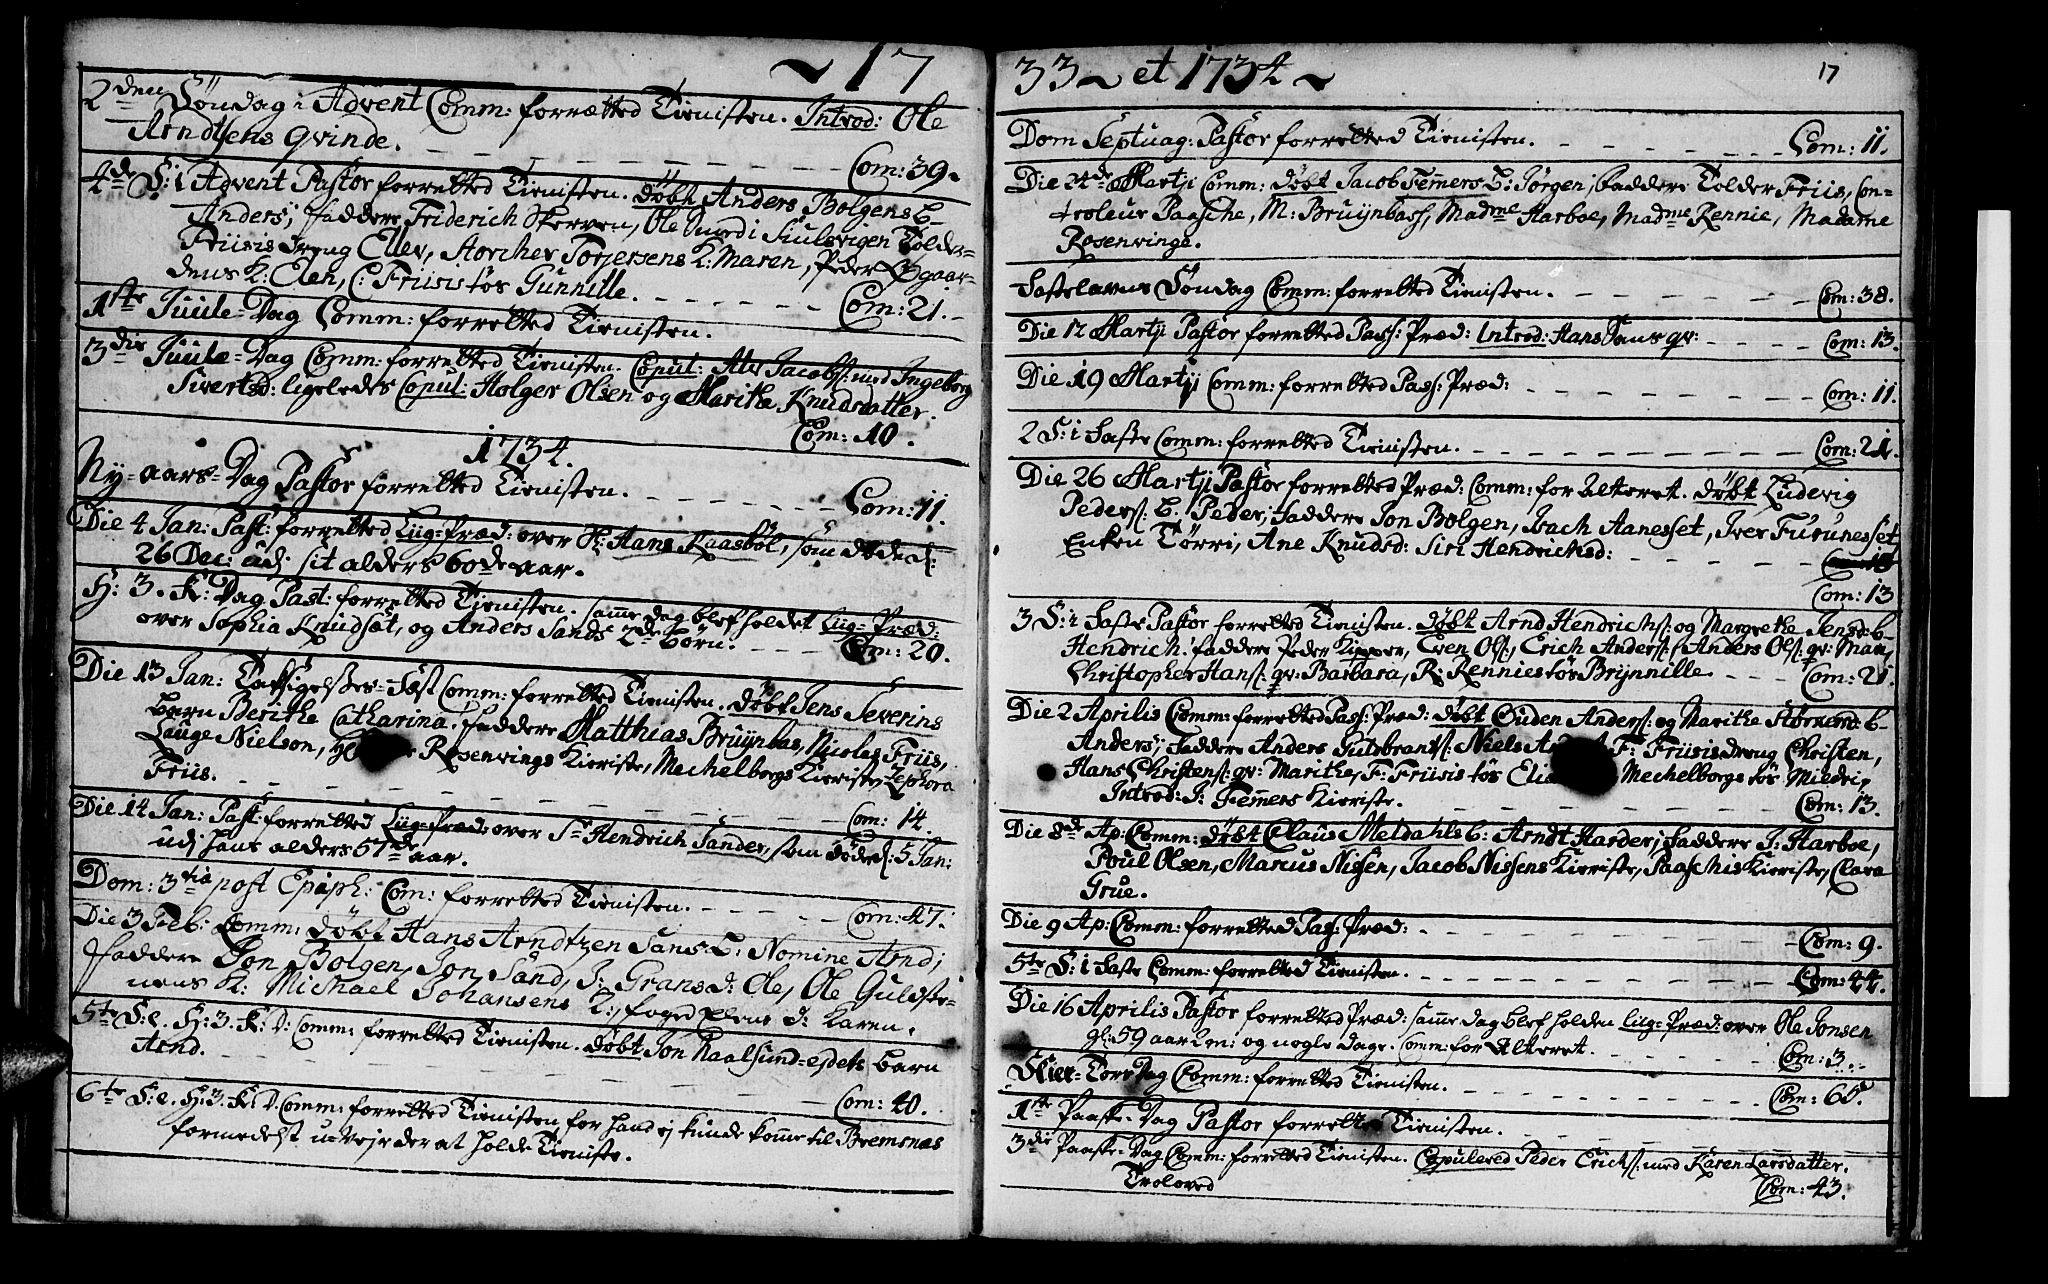 ~ 17
2den Söndag i Advent Comm: forrætted Tienisten. Introd: Ole
Arndtsens qvinde. Com: 39.
4de S: i Advent Pastor forretted Tienisten. döbt Anders Bolgens b.
Anders; faddere Friderich Skerven, Ole Omed i Siulsvigen Tolder
Friisis dreng Ellev, Storcher Torjersens K: Maren, Peder Ødegaar-
dens K: Elen, C: Friisis tös Gunnille. Com: 21.
1ste Juule-Dag Comm: forretted Tienisten.
3die Juule-Dag Comm: forretted Tienisten. Copul: Ater Jacobs: med Ingeborg
Sivertsd: ligeledes Copul: Holger Olsen og Marithe Knudsdatter.
Com: 10.
1734.
Ny-aars-Dag Pastor forretted Tienisten. Com: 11.
Die 4 Jan: Past: forretted Liig-Præd: over Sl: Hans Kaasböl, som döde d:
26 Dec: udj sit alders 60de aar.
H: 3. K: Dag Past: forretted Tienisten. samme dag blef holdet Liig-Præd:
over Sophia Knudsæt, og Anders Sands 2de börn. Com: 20.
Die 13 Jan: Taksigelses-Fæst Comm: forretted Tienisten. döbt Jens Severins
barn Berithe Catharina. faddere Matthias Bruynbas, Nicolas Friis,
Lauge Nielson, Rosenvings Kieriste, Mechelborgs Kieriste, Zephora
Friis. Com: 14.
Die 14 Jan: Past: forretted Liig-Præd: over Sr Hendrich Sander, som döde d: 5 Jan:
udj hans alders 57de aar.
Dom: 3tia post Epiph: Com: forretted Tienisten. Com: 47.
Die 3 Feb: Comm: döbt Hans Arndtzen Sans b: Nomine Arnd;
faddere Jon Bolgen, Jon Sand, J: Grans d: Ole, Ole Guldste-
nens K: Michael Johansens K:, foged Elens d: Karen.
5te S: e. H: 3. K: D: Comm: forretted Tienisten. döbt Jon Raalsund-esdets barn
Arnd. Com: 40.
6te S: e. H: 3. K: D. Comm: forretted Tienisten, for hand ej kunde komme til Bremsnæs
formedelst uvejr der at holde Tieniste.
33 ~ et 1734 ~
17
Dom Septuag: Pastor forretted Tienisten. Com: 11.
Die 24de Martji Comm: döbt Jacob Femers b: Jörgen; faddere Tolder Friis, Con-
troleur Paasche, M: Bruynbass, Madme Harboe, Madme Rennie, Madame
Rosenvinge.
Fastelavns Söndag Comm: forretted Tienisten. Com: 38.
Die 12 Martji Pastor forretted Pass: Præd: Introd: Hans Sans qv: Com: 13.
Die 19 Martji Comm: forretted Pass: Præd: Com: 11.
2 S: i Faste Comm: forretted Tienisten. Com: 21.
Die 26 Martji Pastor forretted Præd: Comm: for Alteret. döbt Ludevig
Peders: b. Peder; faddere Jon Bolgen, Isach Aanesset, Iver Furunesset
Enken Törri, Ane Knudsd: Siri Hendrichsd:
Com: 13
3 S: i Faste Pastor forretted Tienisten. döbt Arnd Hendrichs: og Margrethe Jensd: b-
Hendrich: faddere Peder Kipper, Even Ols:, Erich Anders: Anders Ols: qv: Mari,
Christopher Hans: qv: Barbara, R: Rennies tös Brynnille. Com: 21.
Die 2 Aprilis Comm: forretted Pass: Præd: döbt Ouden Anders: og Marithe Störkersd: b-
Anders; faddere Anders Gulbrants: Niels F: Friisis dreng Christen,
Hans Christens: qv: Marithe, F: Friisis tös Mechelborgs tös Mildrij,
Introd: J: Femers Kieriste. Com: 13.
Die 8de Ap: Comm: döbt Claus Meldahls b: Arndt Harder; faddere J: Harboe,
Poul Olsen, Marcus Nissen, Jacob Nissens Kieriste, Paaschis Kieriste, Clara
Grue.
Die 9 Ap: Comm: forretted Pass: Præd: Com: 9.
5te S: i Faste Comm: forretted Tienisten. Com: 44.
Die 16 Aprilis Pastor forretted Præd: samme dag blef holden Liig-Præd: over Ole Jonsen
gl: 59 aar 2 m: og nogle dage. Comm: for Alteret. Com: 3.
Skier-Torsdag Comm: forretted Tienisten. Com: 65.
1ste Paaske-Dag Pastor forretted Tienisten.
3die Paaske-Dag Comm: forretted Tienisten. Copulered Peder Erichs: med Karen Larsdatter.
Troloved Com: 43.